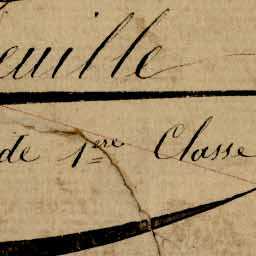 euille
de 1ere Classe